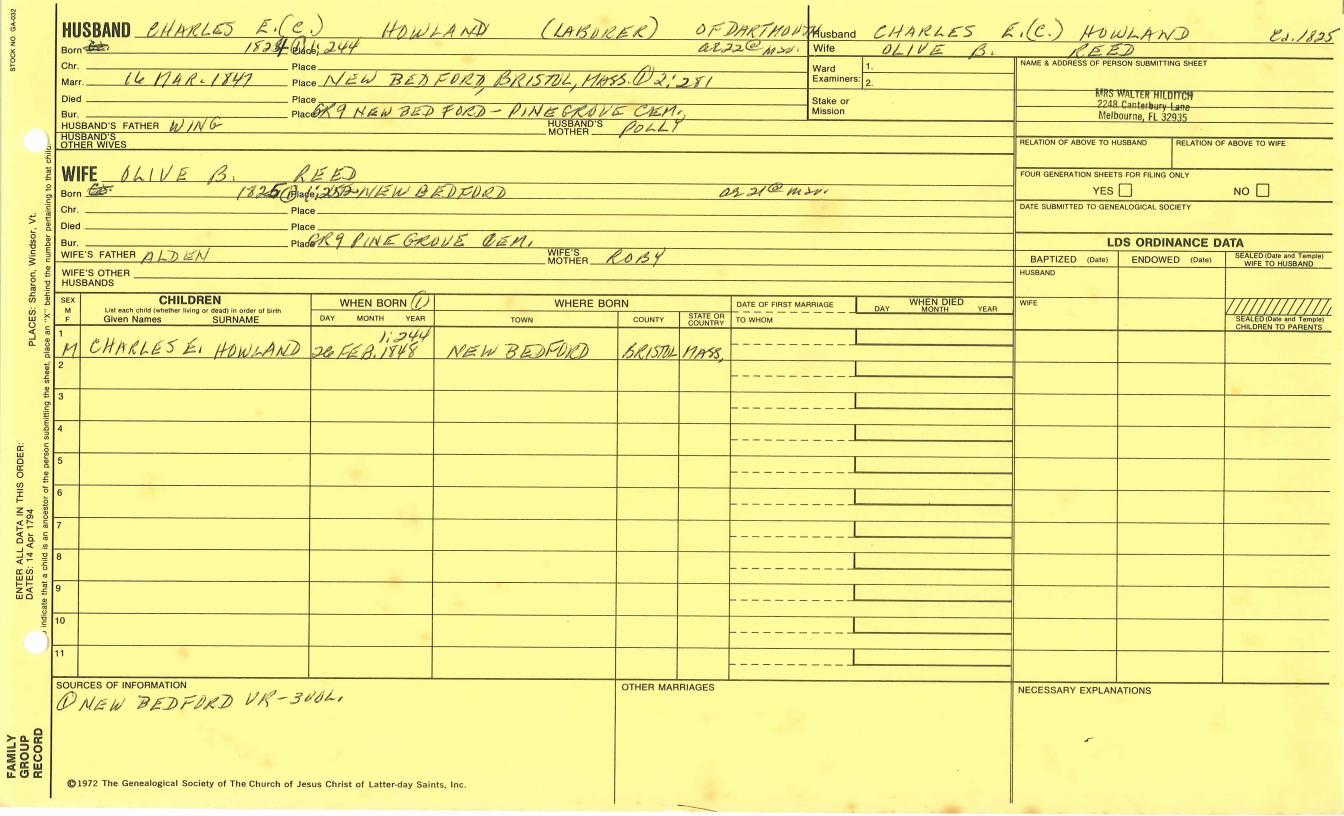 STOCK NO. GA-032
HUSBAND CHARLES E.(C.) HOWLAND (LABORER) OF DARTMOUTH
Born 1824 Place ① 1:244 ae. 22 @ mar.
Chr. Place
Marr. 16 MAR. 1847 Place NEW BEDFORD, BRISTOL, MASS. ① 2:281
Died Place
Bur. Place GR9 NEW BEDFORD - PINE GROVE CEM.
HUSBAND'S FATHER WING HUSBAND'S MOTHER POLLY
HUSBAND'S OTHER WIVES
Husband CHARLES E.(C.) HOWLAND Ca. 1825
Wife OLIVE B. REED
Ward Examiners: 1. 2.
Stake or Mission
NAME & ADDRESS OF PERSON SUBMITTING SHEET
MRS WALTER HILDITCH
2248 Canterbury Lane
Melbourne, FL 32935
RELATION OF ABOVE TO HUSBAND RELATION OF ABOVE TO WIFE
FOUR GENERATION SHEETS FOR FILING ONLY
YES NO
DATE SUBMITTED TO GENEALOGICAL SOCIETY
WIFE OLIVE B. REED
Born 1825 Place ① 1:252 NEW BEDFORD ae. 21 @ mar.
Chr. Place
Died Place
Bur. Place GR9 PINE GROVE CEM.
WIFE'S FATHER ALDEN WIFE'S MOTHER ROBY
WIFE'S OTHER HUSBANDS
LDS ORDINANCE DATA
BAPTIZED (Date) ENDOWED (Date) SEALED (Date and Temple) WIFE TO HUSBAND
HUSBAND
WIFE
SEALED (Date and Temple) CHILDREN TO PARENTS
SEX M F
CHILDREN
List each child (whether living or dead) in order of birth
Given Names SURNAME
WHEN BORN ①
DAY MONTH YEAR
WHERE BORN
TOWN COUNTY STATE OR COUNTRY
DATE OF FIRST MARRIAGE
TO WHOM
WHEN DIED
DAY MONTH YEAR
1 1:244
M CHARLES E. HOWLAND 26 FEB. 1848 NEW BEDFORD BRISTOL MASS.
2
3
4
5
6
7
8
9
10
11
SOURCES OF INFORMATION
① NEW BEDFORD VR - 3 VOL.
OTHER MARRIAGES
NECESSARY EXPLANATIONS
©1972 The Genealogical Society of The Church of Jesus Christ of Latter-day Saints, Inc.
FAMILY GROUP RECORD
ENTER ALL DATA IN THIS ORDER:
DATES: 14 Apr 1794
PLACES: Sharon, Windsor, Vt.
indicate that a child is an ancestor of the person submitting the sheet, place an "X" behind the number pertaining to that child.